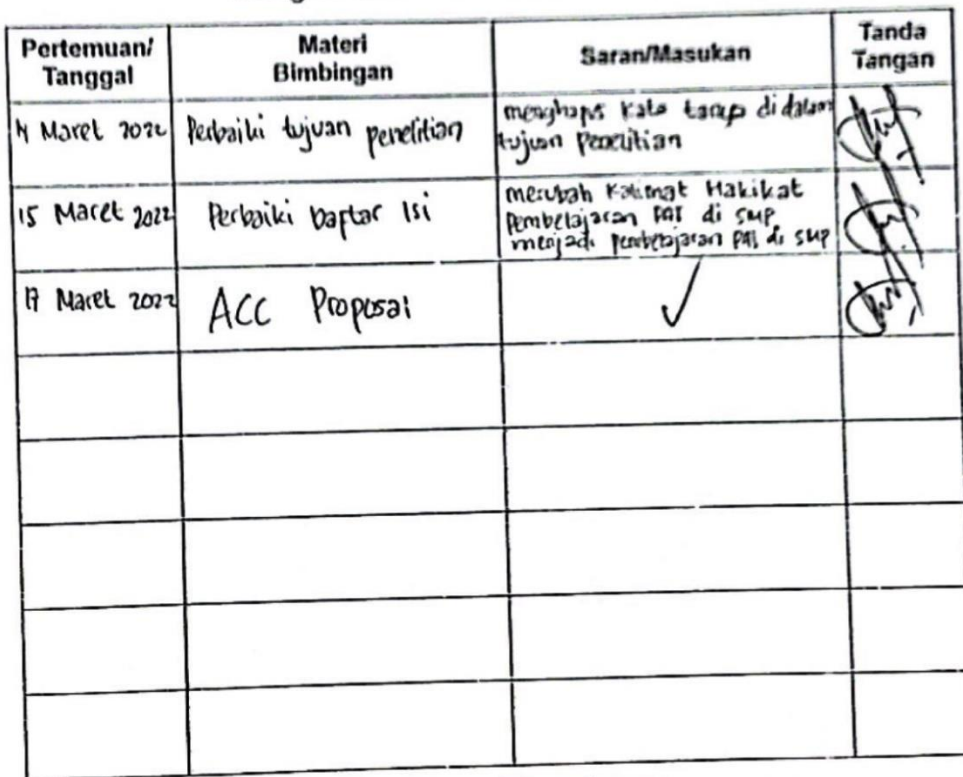 Pertemuan/
Tanggal
Materi
Bimbingan
Saran/Masukan
Tanda
Tangan
Maret 2022
Perbaiki tujuan penelitian
menghaps kata di dalam
tujuan Penelitian
15 Maret 2022
Perbaiki Daptar Isi
merubah Kalimat Hakikat
Pembelajaran PAI di SMP
menjadi pembelajaran PAI di SMP
17 Maret 2022
ACC Proposal
✓